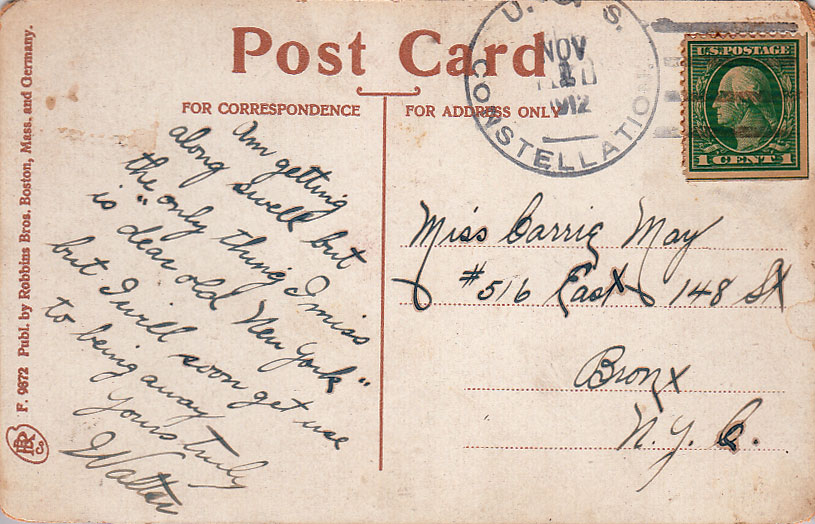 Post Card
FOR CORRESPONDENCE
FOR ADDRESS ONLY
U. S. S.
CONSTELLATION
NOV
1
1912
U.S. POSTAGE
1 CENT 1
Am getting
along swell but
the "only thing I miss
is dear old New York"
but I will soon get use
to being away
Yours truly
Walter
Miss Carrie May
#516 East 148 St
Bronx
N. Y. C.
F. 9872 Publ. by Robbins Bros. Boston, Mass. and Germany.